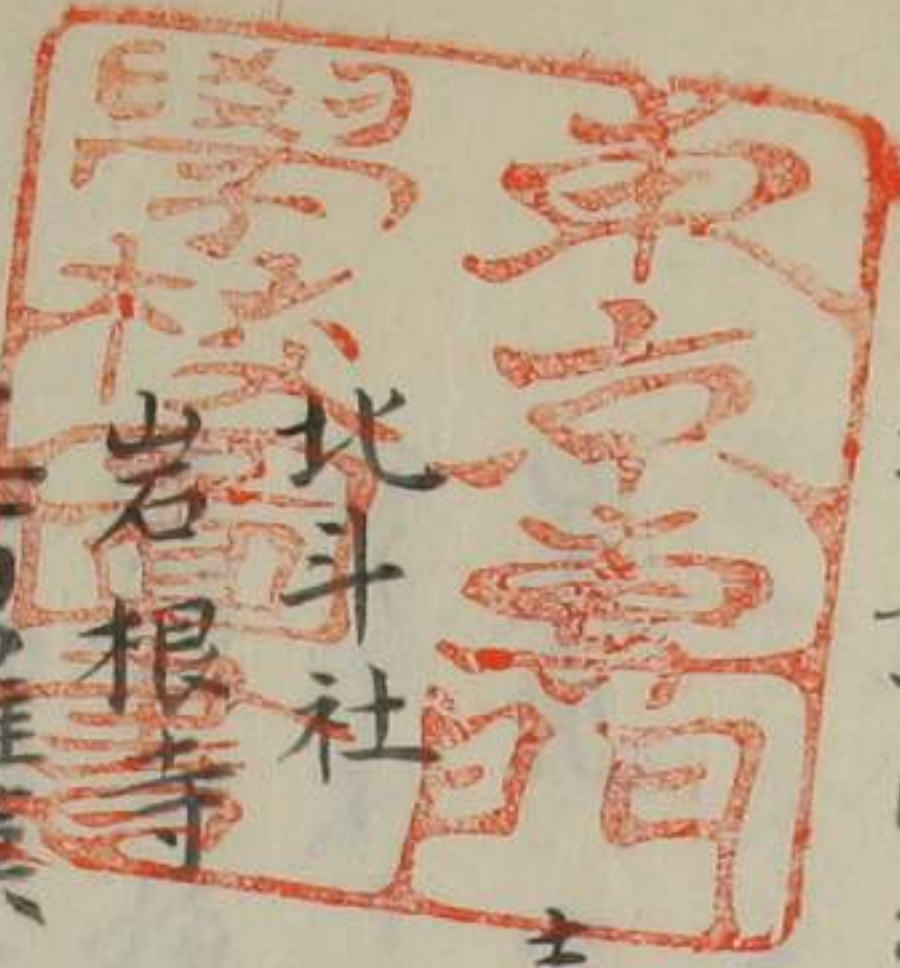 東京專門
學校圖書
北斗社
岩根寺